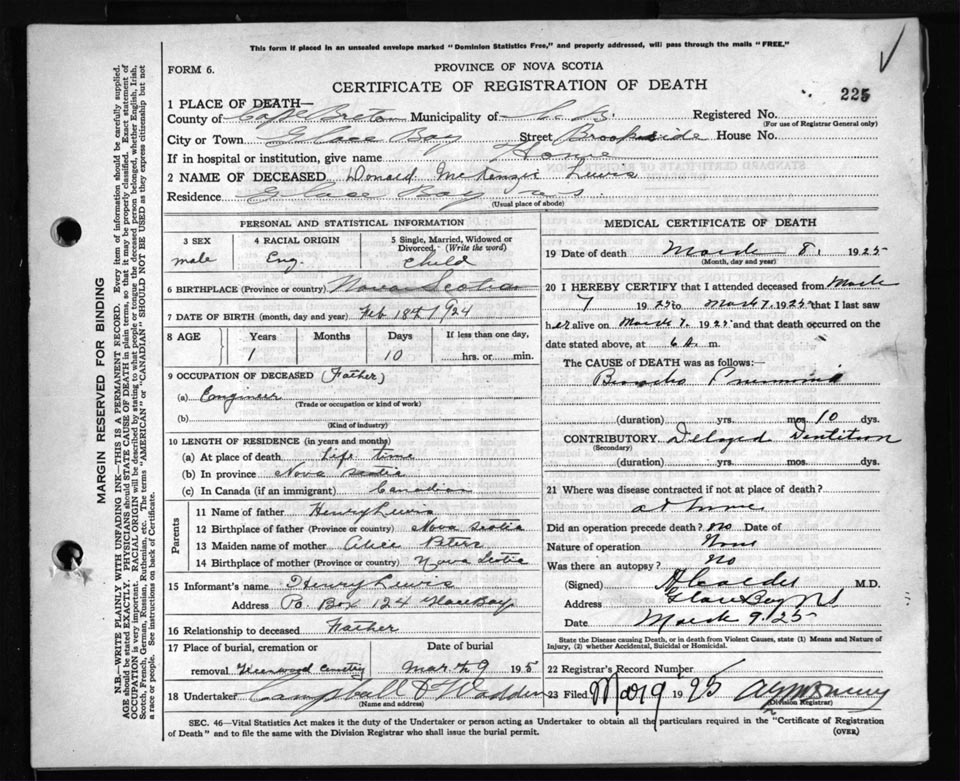 This form if placed in an unsealed envelope marked "Dominion Statistics Free," and properly addressed, will pass through the mails "FREE."
FORM 6.
PROVINCE OF NOVA SCOTIA
CERTIFICATE OF REGISTRATION OF DEATH
225
1 PLACE OF DEATH—
County of Cape Breton Municipality of C. B. Registered No.
(For use of Registrar General only)
City or Town Glace Bay Street Brookside House No.
If in hospital or institution, give name Home
2 NAME OF DECEASED Donald McKenzie Lewis
Residence Glace Bay N S
(Usual place of abode)
PERSONAL AND STATISTICAL INFORMATION
3 SEX male
4 RACIAL ORIGIN Eng.
5 Single, Married, Widowed or Divorced, (Write the word) Child
6 BIRTHPLACE (Province or country) Nova Scotia
7 DATE OF BIRTH (month, day and year) Feb 18th 1924
8 AGE Years Months Days If less than one day,
1 10 hrs. or min.
9 OCCUPATION OF DECEASED (Father)
(a) Engineer
(Trade or occupation or kind of work)
(b)
(Kind of industry)
10 LENGTH OF RESIDENCE (in years and months)
(a) At place of death Life time
(b) In province Nova Scotia
(c) In Canada (if an immigrant) Canadian
Parents
11 Name of father Henry Lewis
12 Birthplace of father (Province or country) Nova Scotia
13 Maiden name of mother Alice Peters
14 Birthplace of mother (Province or country) Nova Scotia
15 Informant's name Henry Lewis
Address P.O. Box 124 Glace Bay
16 Relationship to deceased Father
17 Place of burial, cremation or removal Greenwood Cemetry
Date of burial Mar. 9 195
18 Undertaker Campbell & Wadden
(Name and address)
MEDICAL CERTIFICATE OF DEATH
19 Date of death March 8, 1925
(Month, day and year)
20 I HEREBY CERTIFY that I attended deceased from March
7 1925 to March 7, 1925 that I last saw
her alive on March 7, 1925 and that death occurred on the
date stated above, at 6 A. m.
The CAUSE OF DEATH was as follows:
Broncho Pneumonia
(duration) yrs. mos 10 dys.
CONTRIBUTORY Delayed Dentition
(Secondary)
(duration) yrs. mos. dys.
21 Where was disease contracted if not at place of death?
at home
Did an operation precede death? No Date of
Nature of operation None
Was there an autopsy? No
(Signed) M.D.
Address Glace Bay NS
Date March 9. 25
State the Disease causing Death, or in death from Violent Causes, state (1) Means and Nature of Injury, (2) whether Accidental, Suicidal or Homicidal.
22 Registrar's Record Number
23 Filed Mar 9 1925
(Division Registrar)
SEC. 46—Vital Statistics Act makes it the duty of the Undertaker or person acting as Undertaker to obtain all the particulars required in the "Certificate of Registration of Death" and to file the same with the Division Registrar who shall issue the burial permit.
(OVER)
MARGIN RESERVED FOR BINDING
N.B.—WRITE PLAINLY WITH UNFADING INK—THIS IS A PERMANENT RECORD. Every item of information should be carefully supplied.
AGE should be stated EXACTLY. PHYSICIANS should STATE CAUSE OF DEATH in plain terms, so that it may be properly classified. Exact statement of
OCCUPATION is very important. RACIAL ORIGIN will be described by stating to what people or tongue the deceased person belonged, whether English, Irish,
Scotch, French, German, Russian, Ruthenian, etc. The terms "AMERICAN" or "CANADIAN" SHOULD NOT BE USED as they express citizenship but not
a race or people. See instructions on back of Certificate.